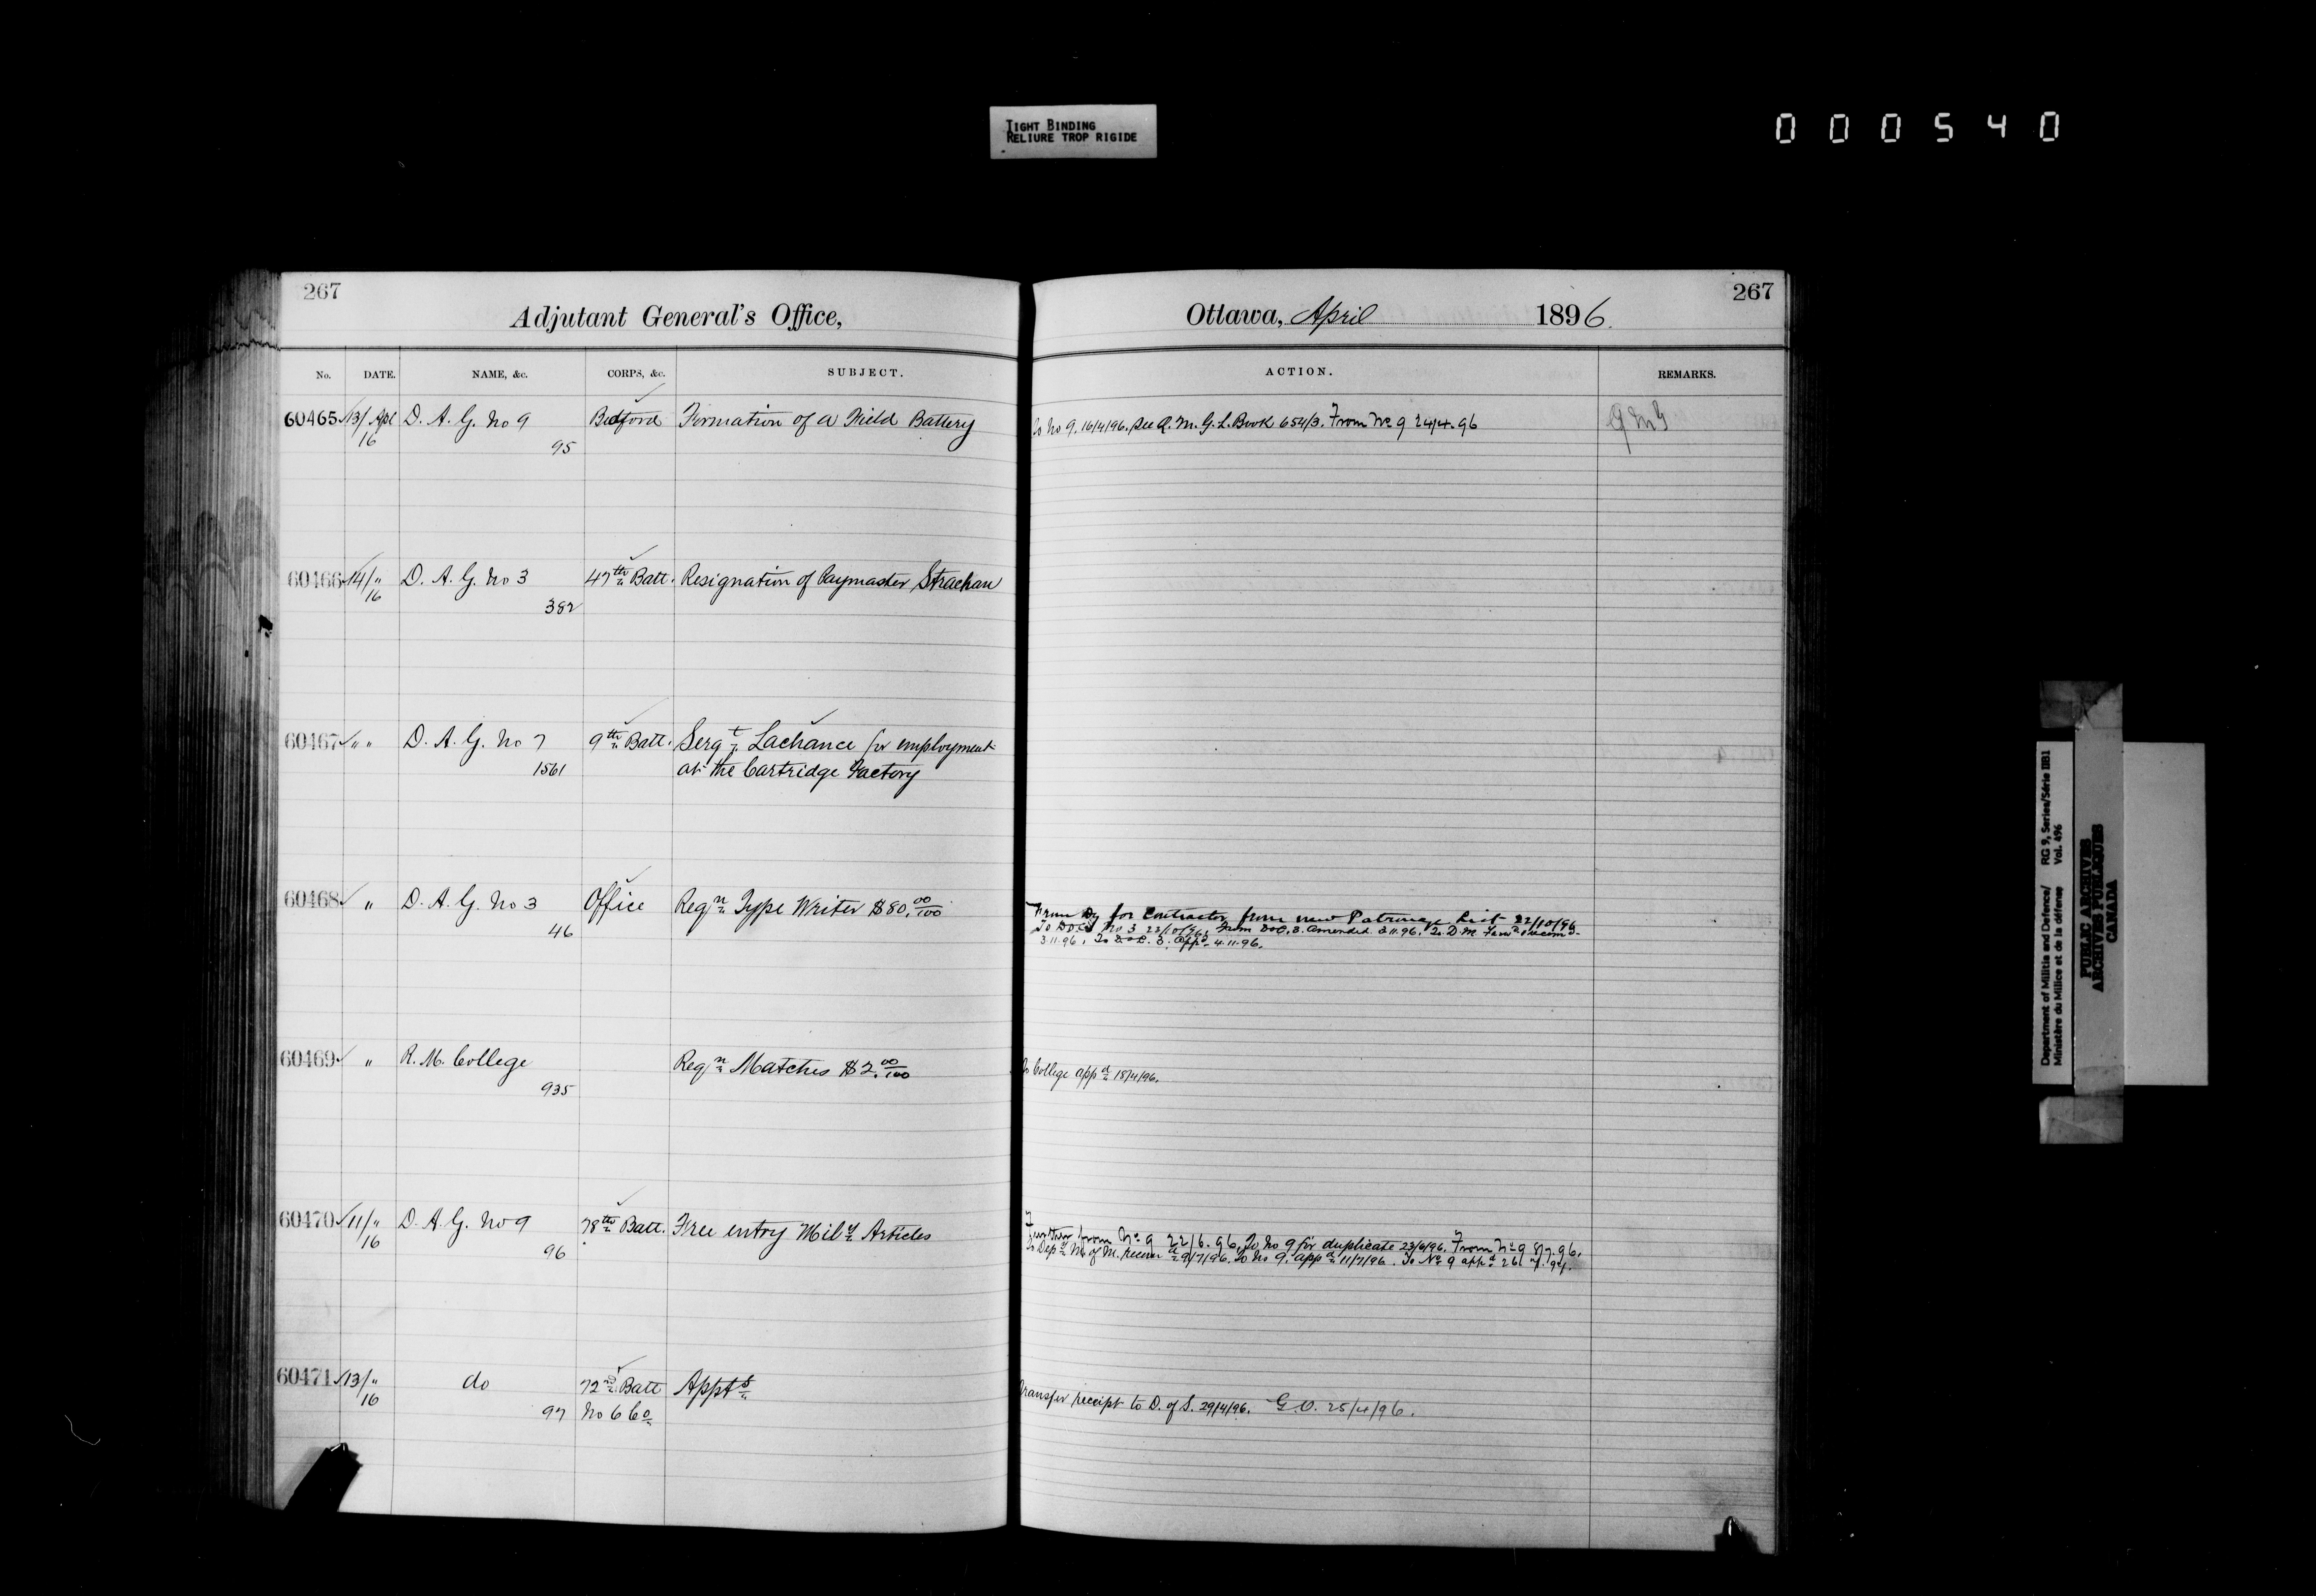 TIGHT BINDING
RELIURE TROP RIGIDE
000540
267
Adjutant General's Office,
Ottawa, April 1896.
267
No. DATE. NAME, &c. CORPS, &c. SUBJECT. ACTION. REMARKS.
60465 13/ Apl D. A. G. No 9 Bedford Formation of a Field Battery To No 9. 16/4/96. See Q. M. G. L. Book 654/3. From No 9 24/4.96 QMG
16 95
60466 14/ " D. A. G. No 3 47th Batt. Resignation of Paymaster Strachan
16 382
60467 " " D. A. G. No 7 9th Batt. Sergt Lachance for employment
1561 at the Cartridge Factory
60468 " D. A. G. No 3 Office Reqn Type Writer $80.00/100 From for Contractor from new Patronage List 22/10/96
46 To DOC No 3 23/10/96, From DOC, 3. Amended 3.11.96. To D.M.
3.11.96, To D.O.C. 3. Appd 4.11.96.
60469 " R. M. College Reqn Matches $2.00/100 To College appd 18/4/96.
935
60470 11/ " D. A. G. No 9 78th Batt. Free entry Mily Articles Further from No 9 22/6.96. To No 9 for duplicate 23/6/96. From No 9 8/7.96.
16 96 To Dep. M. of M. recom. 9/7/96. To No 9. appd 11/7/96. To No 9 appd 26.
60471 13/ " do 72nd Batt Appts Transfer receipt to D. of S. 29/4/96. G.O. 25/4/96.
16 97 No 6 Co
Department of Militia and Defence/ RG 9, Series/Série IIB1
Ministère du Milice et de la défense Vol. 496
PUBLIC ARCHIVES
ARCHIVES PUBLIQUES
CANADA